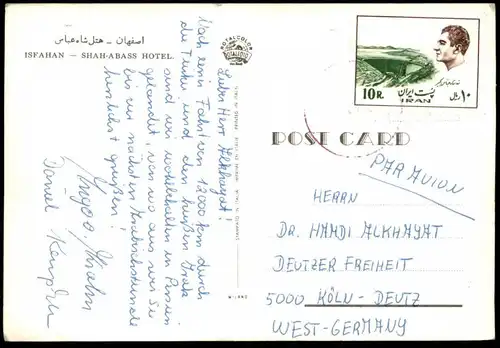 اصفهان ـ هتل شاه عباس
ISFAHAN — SHAH-ABASS HOTEL.
ROTALCOLOR
Lieber Herr Alkhayat!
Nach einer Fahrt von 12000 km durch
die Türkei und den heißen Irak
sind wir wohlbehalten in Persien
gelandet, von wo aus wir Sie
bis zur nächsten Arabischstunde
herzlichst grüßen!
Ingo
Daniel
پست ایران
10R.
IRAN
۱۰ ریال
POST CARD
PAR AVION
HERRN
DR. HAMDI ALKHAYAT
DEUTZER FREIHEIT
5000 KÖLN - DEUTZ
WEST-GERMANY